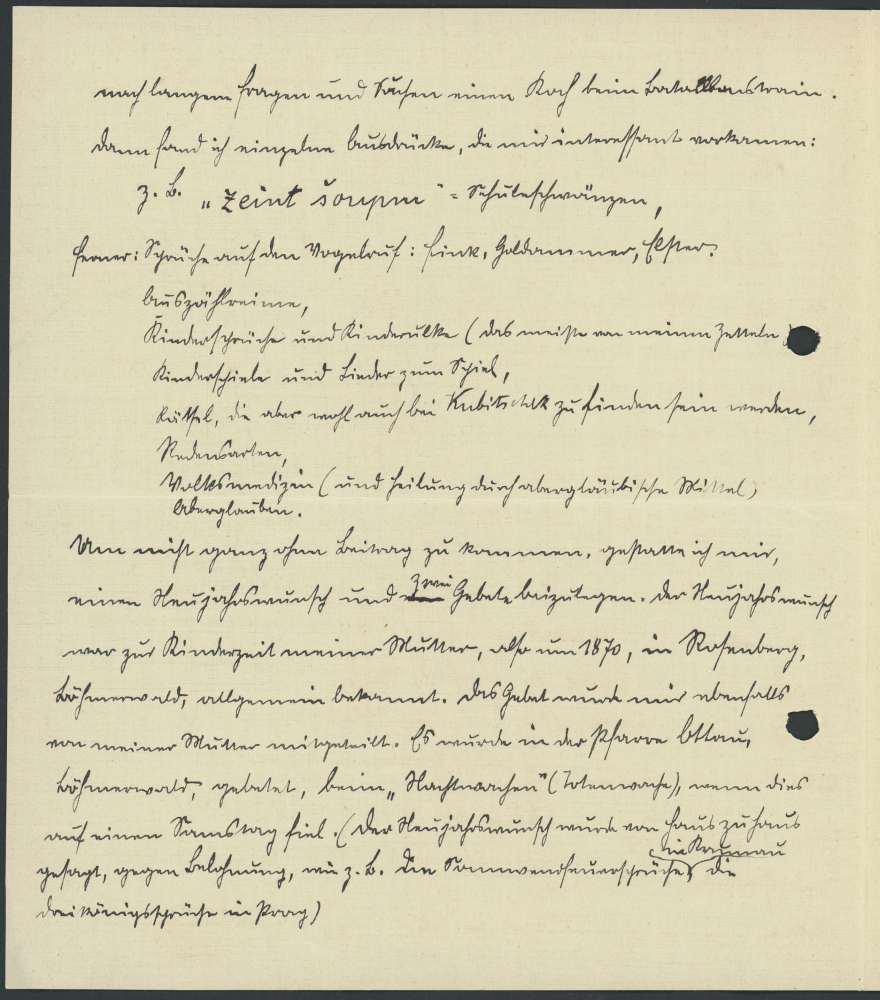 nach langem Fragen und Suchen einen Koch beim Bataillonstrain.
Dann fand ich einzelne Ausdrücke, die mir interessant vorkamen:
z. B. „ = Schuleschwänzen,
ferner: Sprüche auf den Vogelruf: Fink, Goldammer, Elster.
Auszählreime,
Kindersprüche und Kinderulke (das meiste von meinen Zetteln)
Kinderspiele und Lieder zum Spiel,
Rätsel, die aber wohl auch bei Kubitschek zu finden sein werden,
Redensarten,
Volksmedizin (und Heilung durch abergläubische Mittel)
Aberglauben.
Um nicht ganz ohne Beitrag zu kommen, gestatte ich mir,
einen Neujahrswunsch und zwei Gebete beizulegen. Der Neujahrswunsch
war zur Kinderzeit meiner Mutter, also um 1870, in Rosenberg,
Böhmerwald, allgemein bekannt. Das Gebet wurde mir ebenfalls
von meiner Mutter mitgeteilt. Es wurde in der Pfarre Ottau,
Böhmerwald, gebetet, beim „Nachtwachen" (Totenwache), wenn dies
auf einen Samstag fiel. (Der Neujahrswunsch wurde von Haus zu Haus
gesagt, gegen Belohnung, wie z. B. die Sonnwendfeuersprüche in Krumau, die
Dreikönigssprüche in Prag)